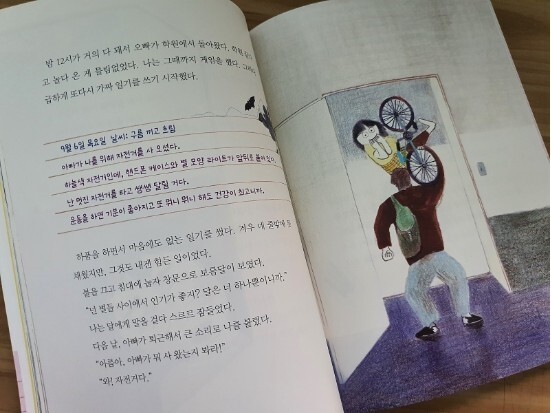 밤 12시가 거의 다 돼서 오빠가 학원에서 돌아왔다. 학원
고 놀다 온 게 틀림없었다. 나는 그때까지 게임을 했다. 그러고
급하게 또다시 가짜 일기를 쓰기 시작했다.
9월 6일 목요일 날씨: 구름 끼고 흐림
아빠가 나를 위해 자전거를 사 오셨다.
하늘색 자전거인데, 핸드폰 케이스와 별 모양 라이트가 앞뒤로
난 멋진 자전거를 타고 쌩쌩 달릴 거다.
운동을 하면 기분이 좋아지고 또 뭐니 뭐니 해도 건강이 최고니까.
하품을 하면서 마음에도 없는 일기를 썼다. 겨우 네 줄밖에
채웠지만, 그것도 내겐 힘든 일이었다.
불을 끄고 침대에 눕자 창문으로 보름달이 보였다.
“넌 별들 사이에서 인기가 좋지? 달은 너 하나뿐이니까.”
나는 달에게 말을 걸다 스르르 잠들었다.
다음 날, 아빠가 퇴근해서 큰 소리로 나를 불렀다.
“아름아, 아빠가 뭐 사 왔는지 봐라!”
“와! 자전거다.”